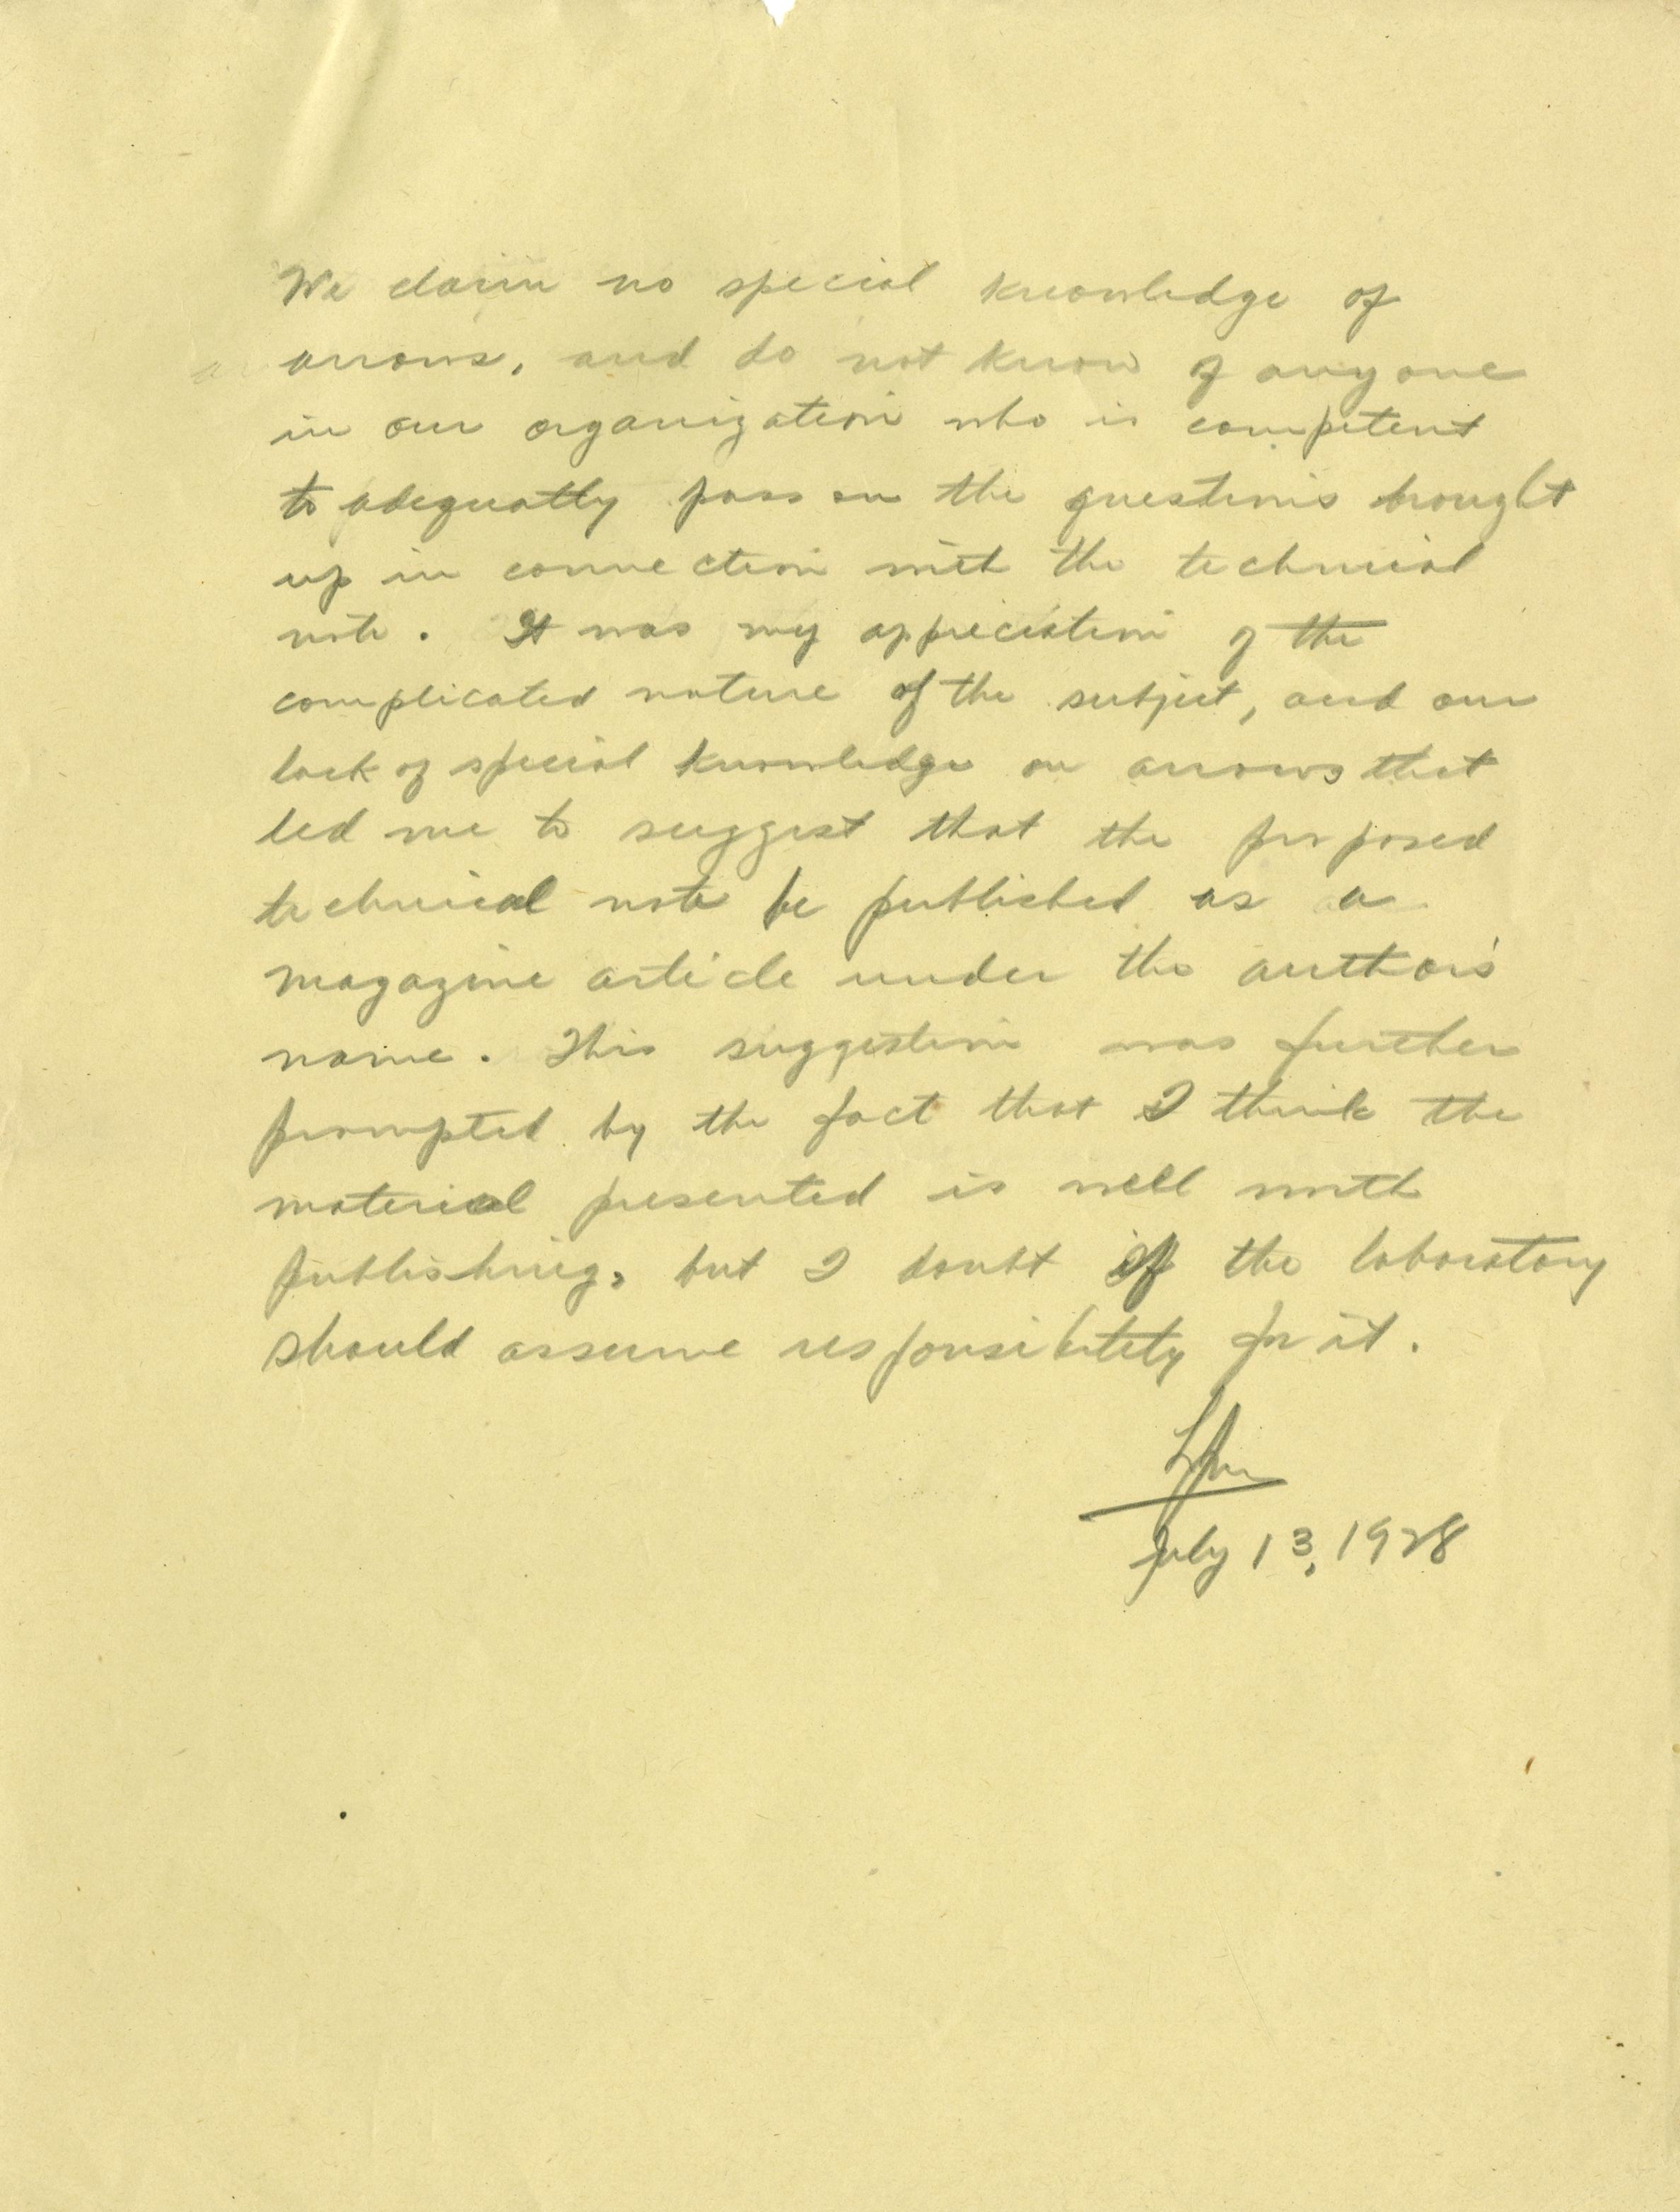 We claim no special knowledge of
arrows, and do not know of anyone
in our organization who is competent
to adequatly pass on the questions brought
up in connection with the technical
note. It was my appreciation of the
complicated nature of the subject, and our
lack of special knowledge on arrows that
led me to suggest that the proposed
technical note be published as a
magazine article under the author's
name. This suggestion was further
prompted by the fact that I think the
material presented is well worth
publishing, but I doubt if the laboratory
should assume responsibility for it.
July 13, 1928